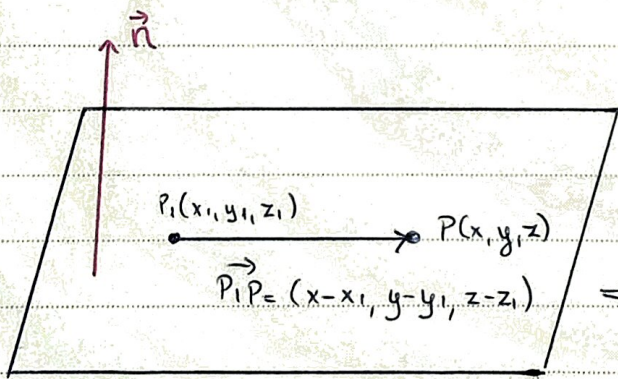 n⃗
P₁(x₁, y₁, z₁)
P(x, y, z)
P₁P⃗ = (x-x₁, y-y₁, z-z₁)
=